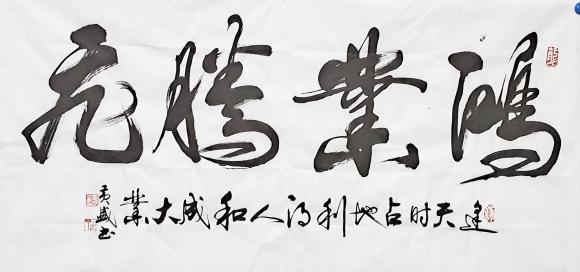 鴻業騰飞
逢天时占地利得人和成大業
黄盛书